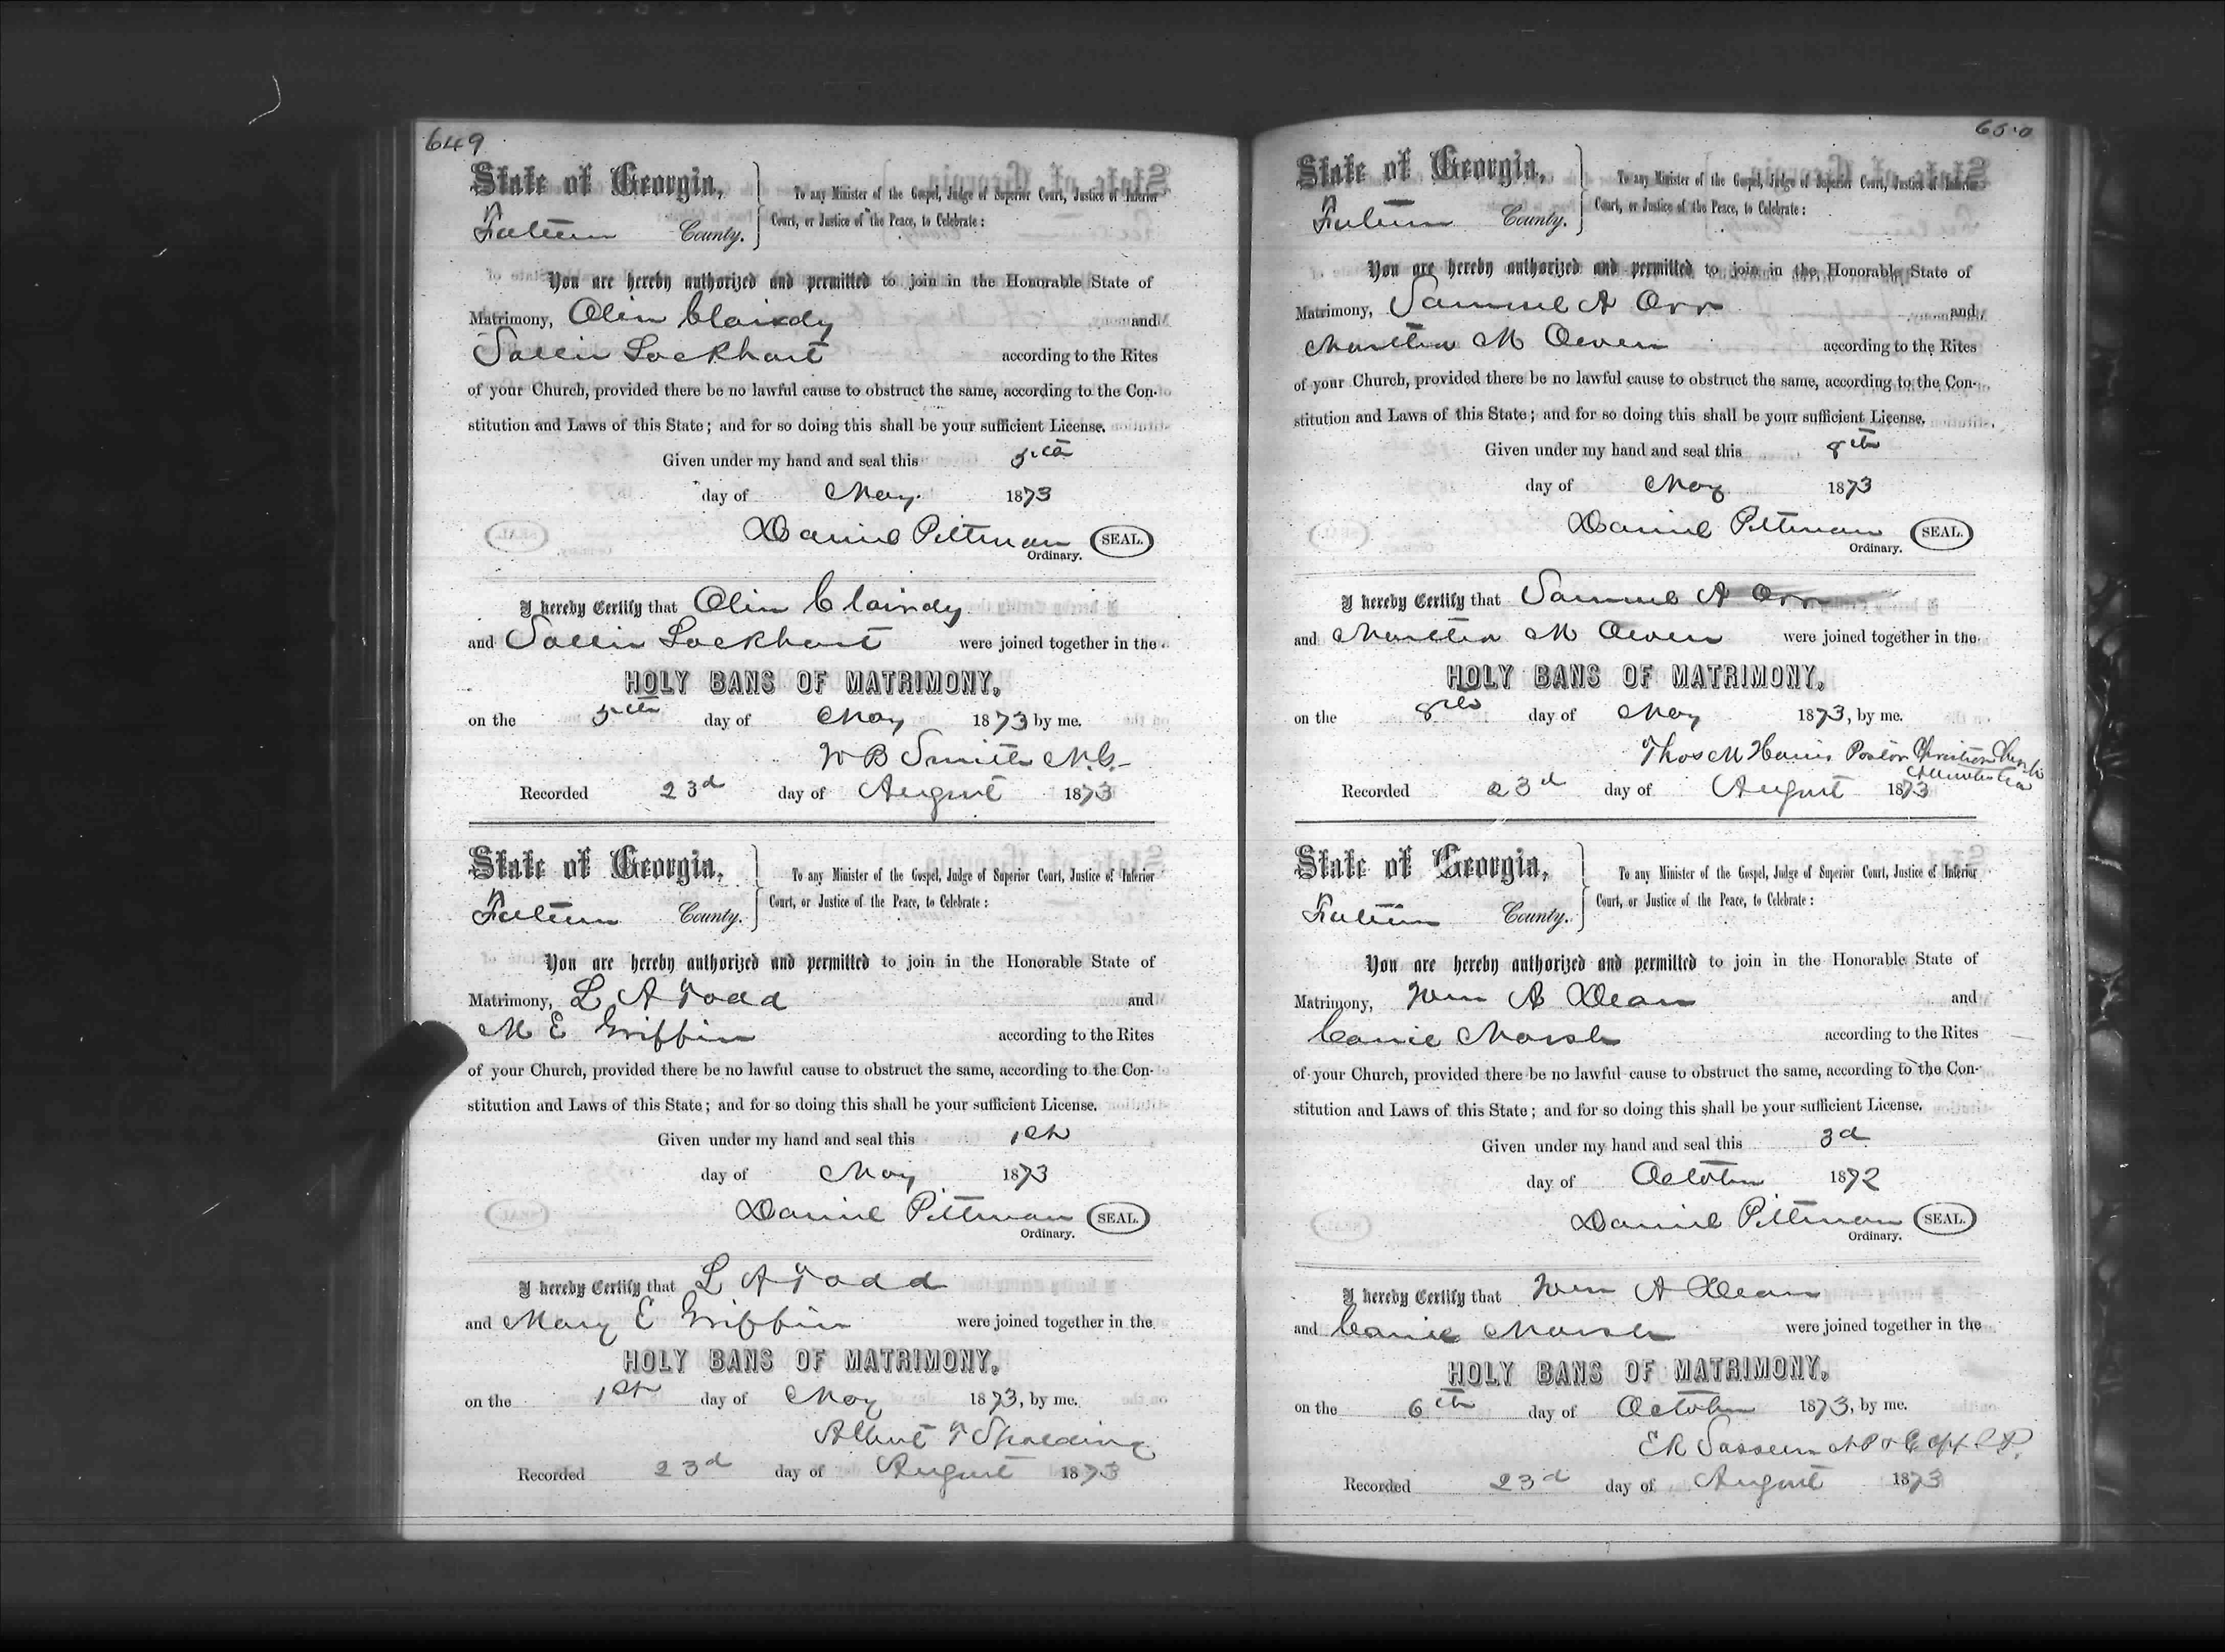 649
State of Georgia,
Fulton County.
To any Minister of the Gospel, Judge of Superior Court, Justice of Inferior
Court, or Justice of the Peace, to Celebrate :
You are hereby authorized and permitted to join in the Honorable State of
Matrimony, Olin Claindy and
Sallie Lockhart according to the Rites
of your Church, provided there be no lawful cause to obstruct the same, according to the Con-
stitution and Laws of this State ; and for so doing this shall be your sufficient License.
Given under my hand and seal this 5th
day of May 1873
Daniel Pittman SEAL.
Ordinary.
I hereby Certify that Olin Claindy
and Sallie Lockhart were joined together in the
HOLY BANS OF MATRIMONY,
on the 5th day of May 1873 by me.
W B Smith M.G.
Recorded 23d day of August 1873
State of Georgia,
Fulton County.
To any Minister of the Gospel, Judge of Superior Court, Justice of Inferior
Court, or Justice of the Peace, to Celebrate :
You are hereby authorized and permitted to join in the Honorable State of
Matrimony, L A Todd and
M E Griffin according to the Rites
of your Church, provided there be no lawful cause to obstruct the same, according to the Con-
stitution and Laws of this State ; and for so doing this shall be your sufficient License.
Given under my hand and seal this 1st
day of May 1873
Daniel Pittman SEAL.
Ordinary.
I hereby Certify that L A Todd
and Mary E Griffin were joined together in the
HOLY BANS OF MATRIMONY,
on the 1st day of May 1873, by me.
Albert T Spalding
Recorded 23d day of August 1873
650
State of Georgia,
Fulton County.
To any Minister of the Gospel, Judge of Superior Court, Justice of Inferior
Court, or Justice of the Peace, to Celebrate :
You are hereby authorized and permitted to join in the Honorable State of
Matrimony, Samuel A Orr and
Martha M Owen according to the Rites
of your Church, provided there be no lawful cause to obstruct the same, according to the Con-
stitution and Laws of this State ; and for so doing this shall be your sufficient License.
Given under my hand and seal this 8th
day of May 1873
Daniel Pittman SEAL.
Ordinary.
I hereby Certify that Samuel A Orr
and Martha M Owen were joined together in the
HOLY BANS OF MATRIMONY,
on the 8th day of May 1873, by me.
Thos M Harris Pastor Christian Church
Atlanta Ga
Recorded 23d day of August 1873
State of Georgia,
Fulton County.
To any Minister of the Gospel, Judge of Superior Court, Justice of Inferior
Court, or Justice of the Peace, to Celebrate :
You are hereby authorized and permitted to join in the Honorable State of
Matrimony, Wm A Dean and
Canie Marsh according to the Rites
of your Church, provided there be no lawful cause to obstruct the same, according to the Con-
stitution and Laws of this State ; and for so doing this shall be your sufficient License.
Given under my hand and seal this 3d
day of October 1872
Daniel Pittman SEAL.
Ordinary.
I hereby Certify that Wm A Dean
and Canie Marsh were joined together in the
HOLY BANS OF MATRIMONY,
on the 6th day of October 1873, by me.
E R Sasseen N P &
Recorded 23d day of August 1873